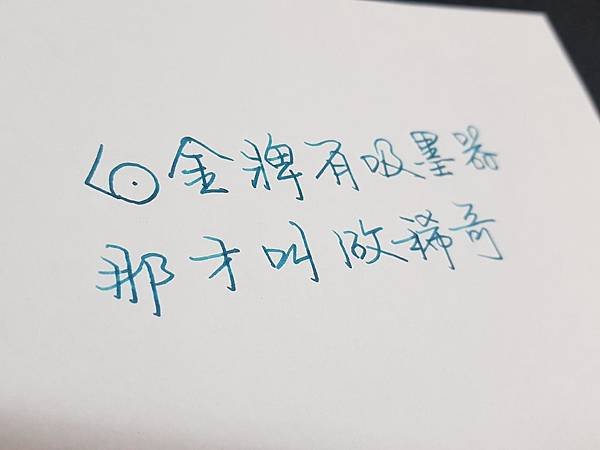 金牌有吸墨器
那才叫做稀奇